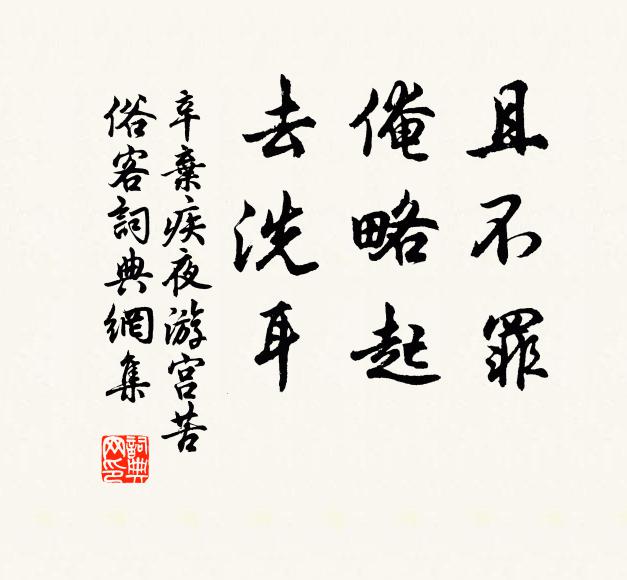 且不罪
俺略起
去洗耳
辛棄疾夜游宮苦
俗客詞典網集
詞典网印